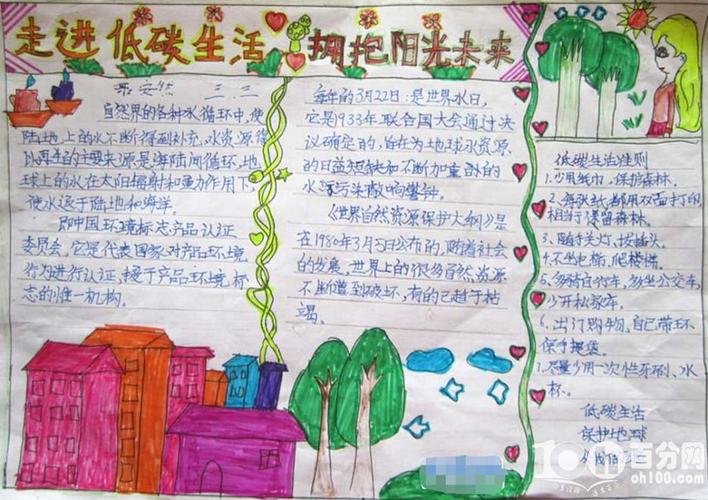 走进低碳生活 拥抱阳光未来
三、三
自然界的各种水循环中,使
陆地上的水不断得到补充,水资源得
以再生的主要来源是海陆间循环,地
球上的水在太阳辐射和重力作用下
使水返于陆地和海洋。
即中国环境标志产品认证
委员会,它是代表国家对产品环境
行为进行认证,授于产品环境标
志的惟一机构。
每年的3月22日:是世界水日,
它是1933年联合国大会通过决
议确定的,旨在为地球水资源
的日益短缺和不断加重的
水源污染敲响警钟。
《世界自然资源保护大纲》是
在1980年3月5日公布的,随着社会
的发展,世界上的很多自然资源
不断遭到破坏,有的已趋于枯
竭。
低碳生活准则
1.少用纸巾,保护森林。
2.每张纸都用双面打印,
相当于保留森林。
3.随手关灯,拔插头。
4.不坐电梯,爬楼梯。
5.多骑自行车,多坐公交车,
少开私家车。
6.出门购物,自己带环
保手提袋。
7.尽量少用一次性牙刷、水
杯。
低碳生活
保护地球
从我
百分网
oh100.com